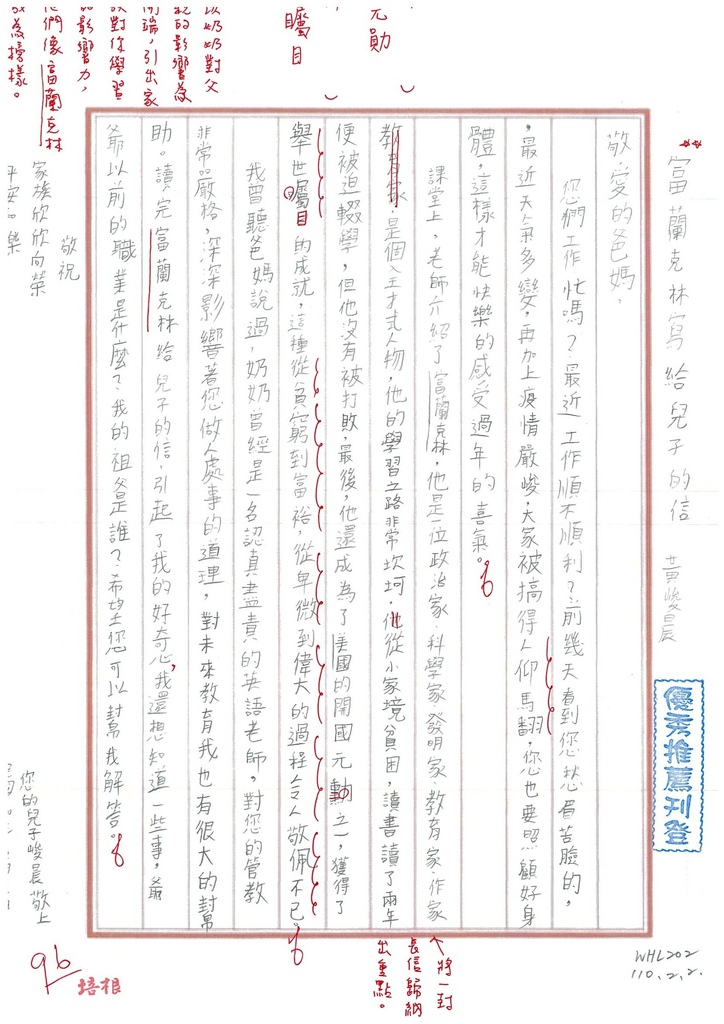 富蘭克林寫給兒子的信　黃峻晨
敬愛的爸媽：
您們工作忙嗎？最近工作順不順利？前幾天看到您愁眉苦臉的，
最近天氣多變，再加上疫情嚴峻，大家被搞得人仰馬翻，您也要照顧好身
體，這樣才能快樂的感受過年的喜氣。
課堂上，老師介紹了富蘭克林，他是一位政治家、科學家、發明家、教育家、作家
教育家，是個全才式人物，他的學習之路非常坎坷，他從小家境貧困，讀書讀了兩年
便被迫輟學，但他沒有被打敗，最後，他還成為了美國的開國元勳之一，獲得了
舉世矚目的成就，這種從貧窮到富裕，從卑微到偉大的過程令人敬佩不已。
我曾聽爸媽說過，奶奶曾經是一名認真盡責的英語老師，對您的管教
非常嚴格，深深影響著您做人處事的道理，對未來教育我也有很大的幫
助。讀完富蘭克林給兒子的信，引起了我的好奇心，我還想知道一些事，爺
爺以前的職業是什麼？我的祖父是誰？希望您可以幫我解答。
敬祝
家族欣欣向榮
平安喜樂
您的兒子峻晨敬上
元勳
矚目
以奶奶對父
親的影響為
開端，引出家
族對你學習
的影響力，
他們像富蘭克林
成為榜樣。
將一封
長信歸納
出重點。
優秀推薦刊登
96
培根
WHL202
110.2.2.